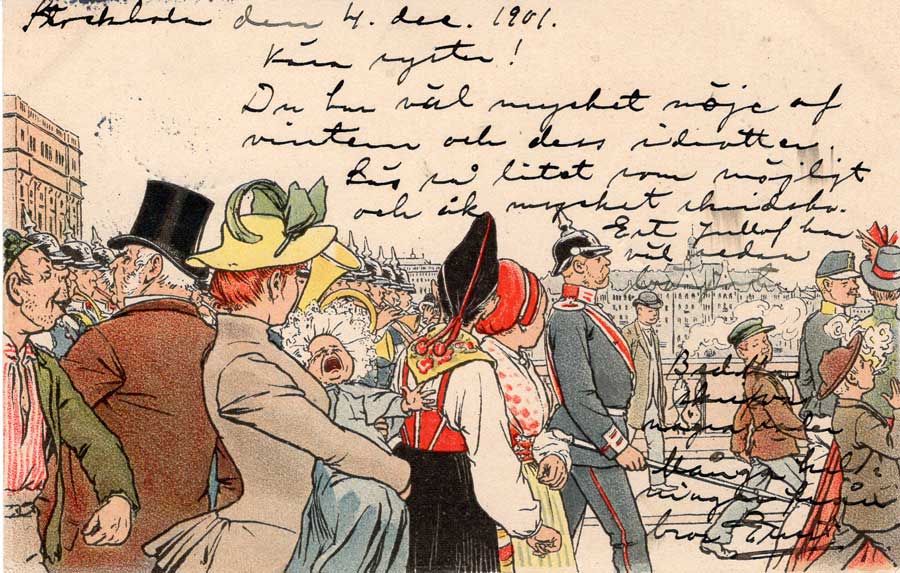 Stockholm den 4. dec. 1901.
Kära syster!
Du har väl mycket nöje af
vintern och dess idrotter.
Läs så litet som möjligt
och åk mycket skridsko.
Ert Jullof har
väl redan
några
Många häls-
ningar från
bror